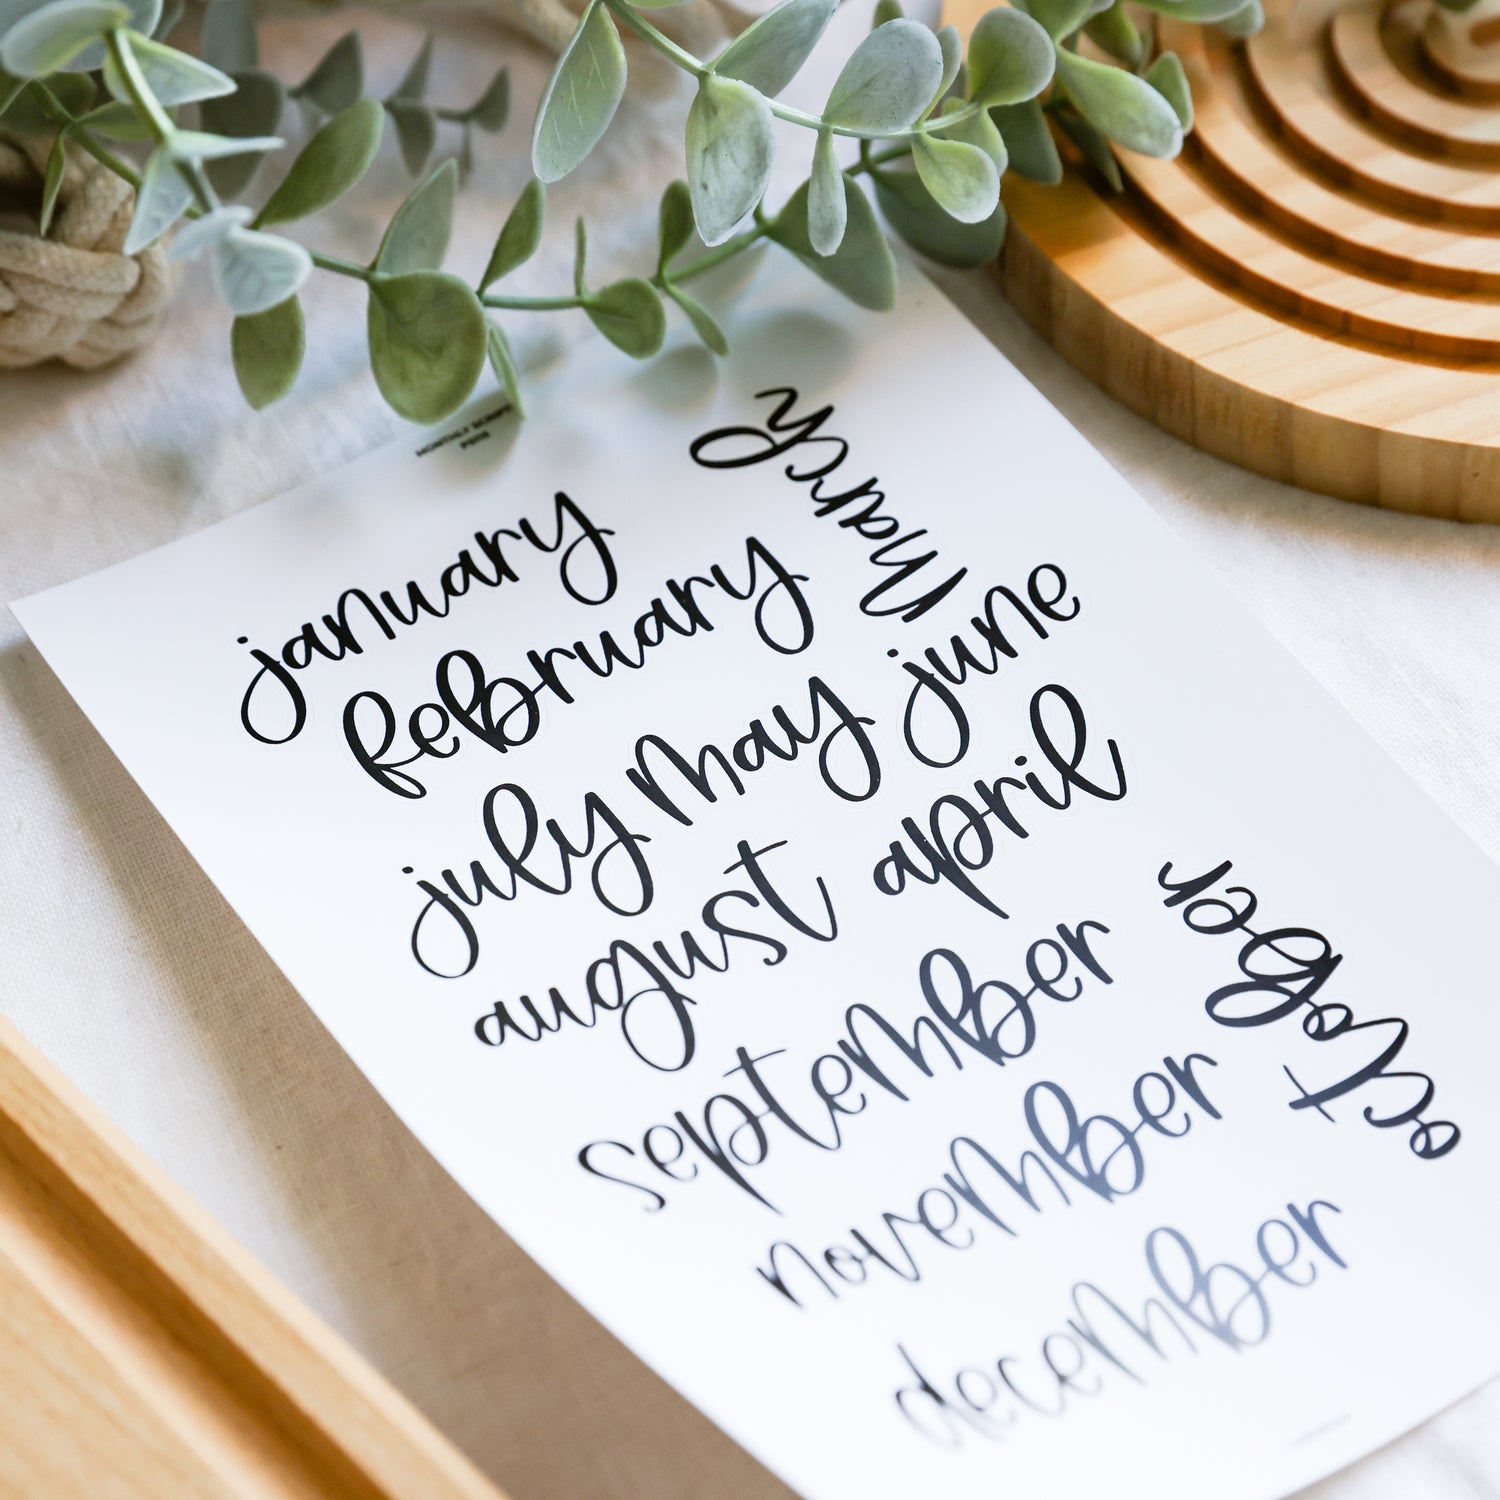 MONTHLY SCRIPT
january
march
february
july may june
august april
september
october
november
december